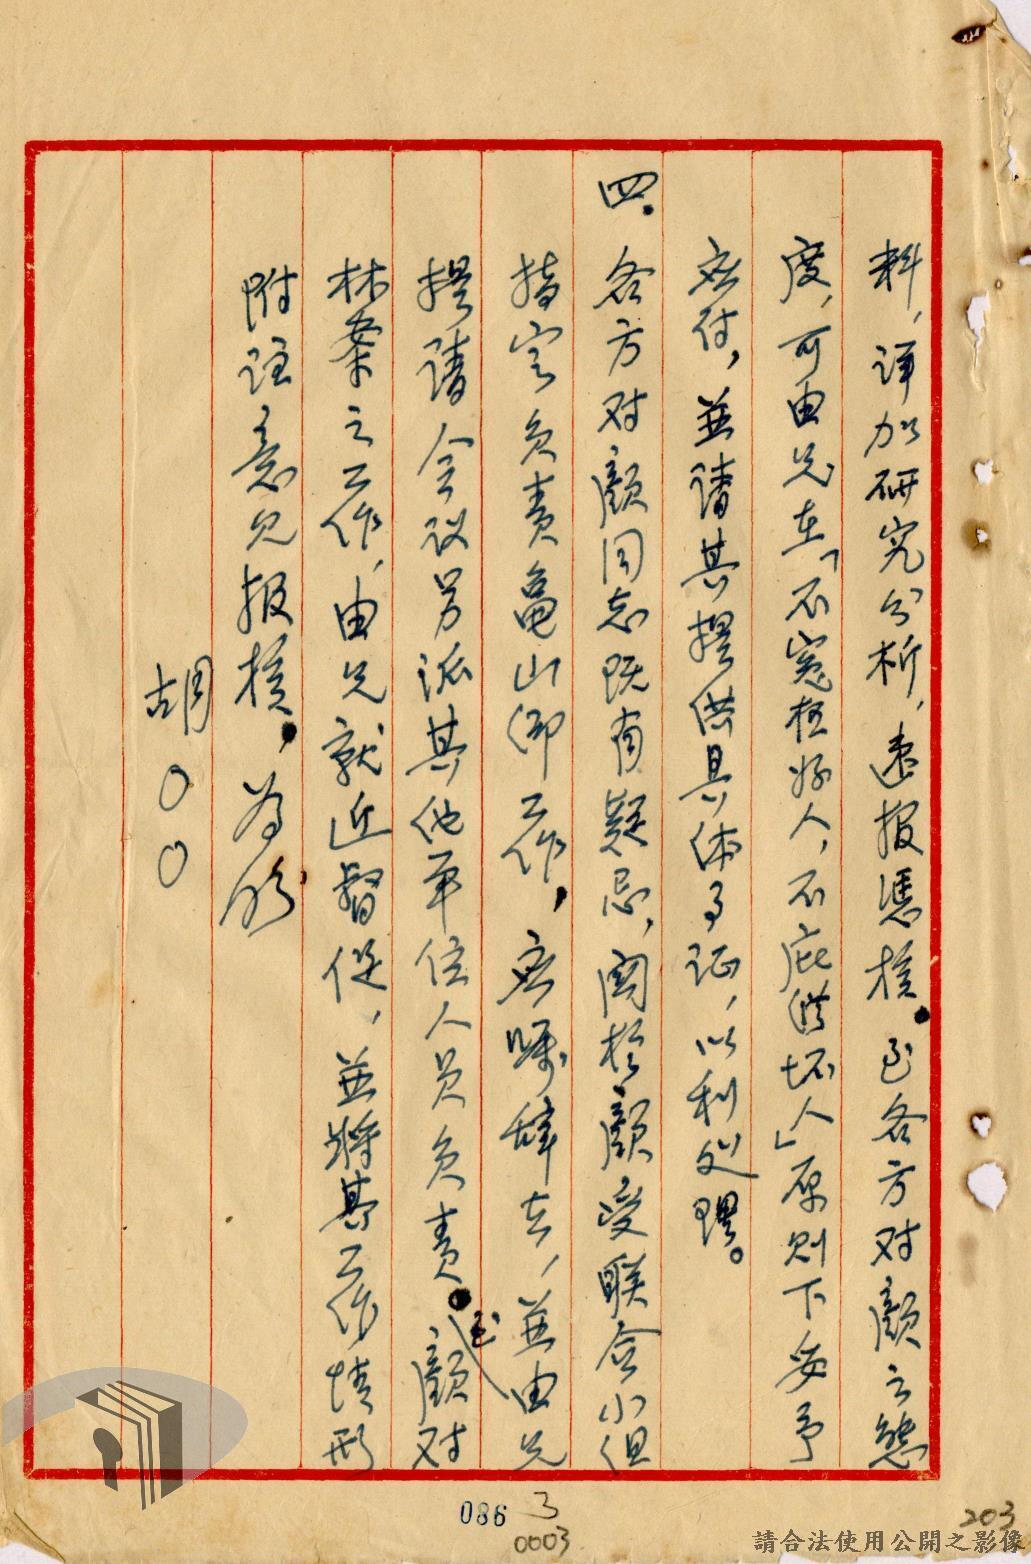 料，详加研究分析，速报憑核。至各方对顧之態
度，可由兄在「不寃枉好人，不庇護坏人」原则下妥予
应付，並请其提供具体事证，以利处理。
四、各方对顧同志既有疑忌，関於顧受联合小组
指定负责龜山鄉工作，应嘱辞去，並由兄
提请会议另派其他单位人员负责。至顧对
林案之工作，由兄就近督促，並將其工作情形
附註意见报核。，为盼
胡〇〇
086
3
0003
203
請合法使用公開之影像